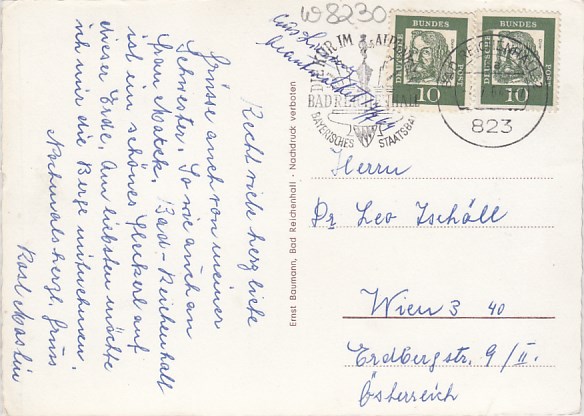 W 8230
DEUTSCHE BUNDES POST
10
DEUTSCHE BUNDES POST
10
KUR IM
BAD REICHENHALL
BAYERISCHES STAATSBAD
823
Recht viele herzliche
Grüsse auch von meiner
Schwester. So wie auch an
Frau Bad-Reichenhall
ist ein schönes Fleckerl auf
dieser Erde. Am liebsten möchte
ich mir die Berge mitnehmen.
Nochmals herzl. Gruss
Ernst Baumann, Bad Reichenhall · Nachdruck verboten
Herrn
Dr Leo
Wien 3 40
Erdbergstr. 9/II.
Österreich